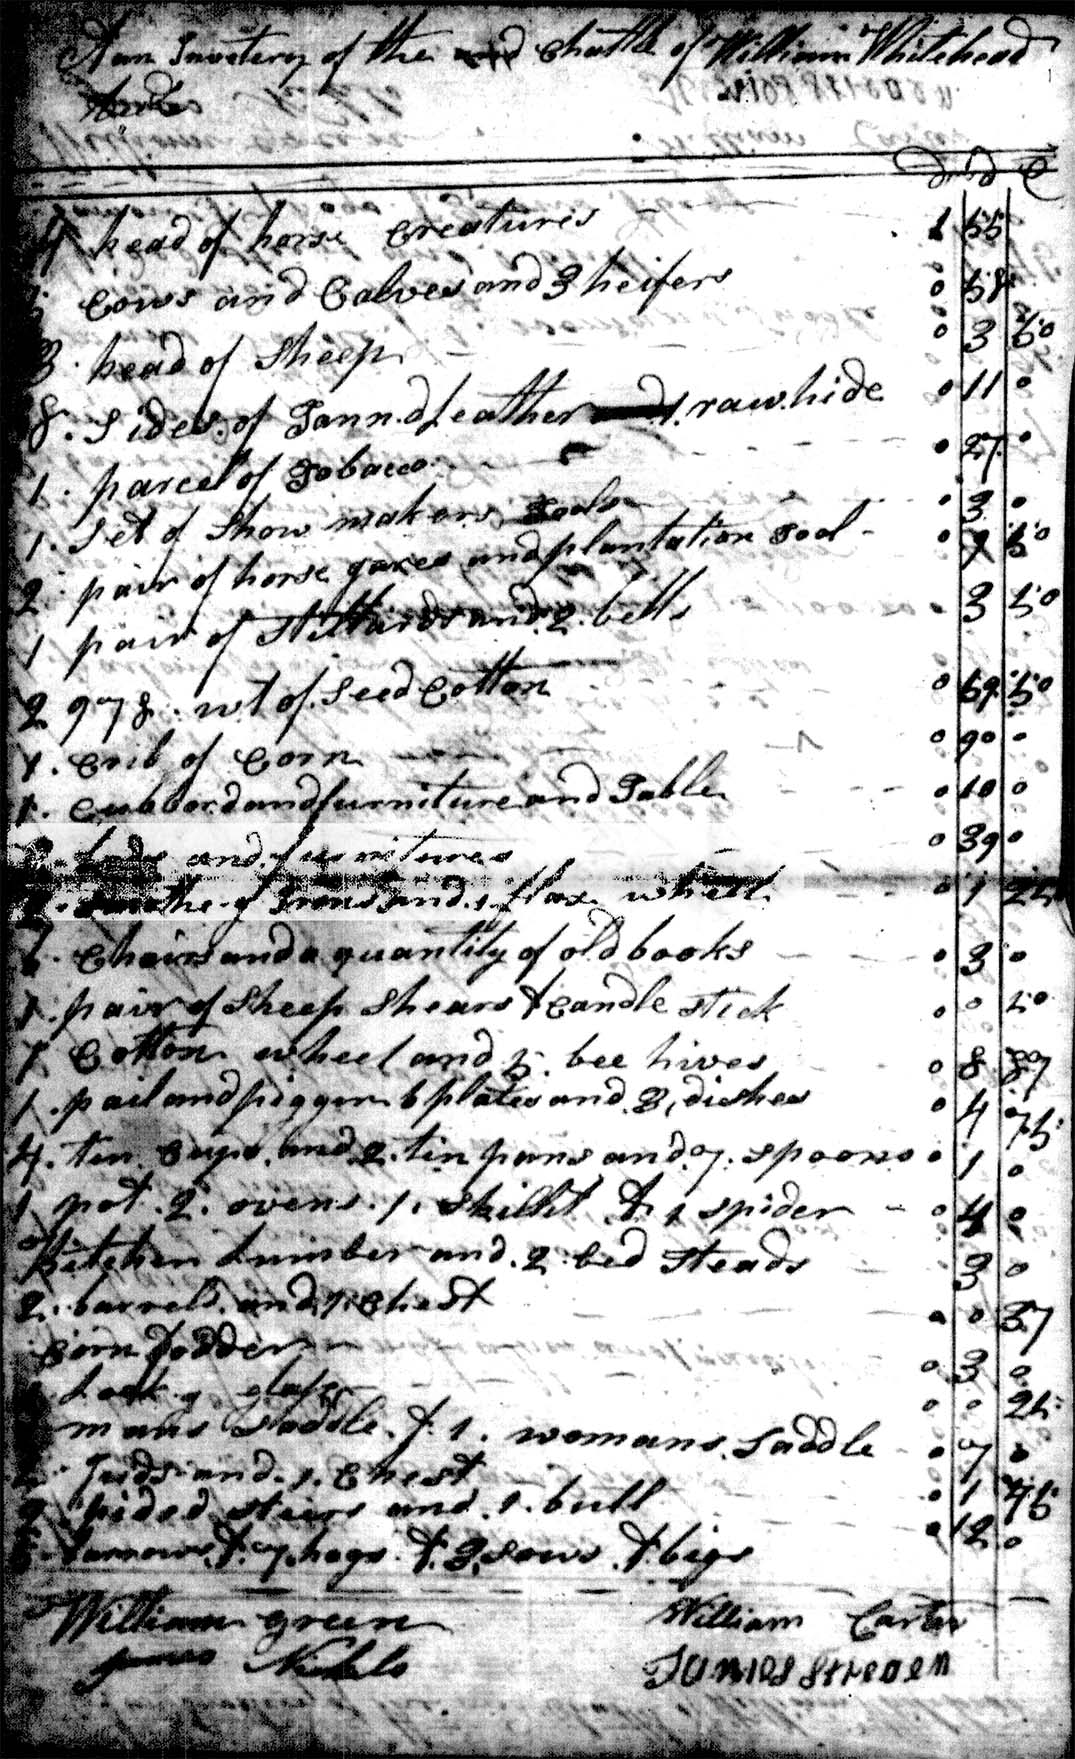 A an Inventery of the chattle of William Whitehead
D D C
4 head of horse Creatures 1 55
Cows and Calves and 3 heifers 0 58
3 head of Sheep 0 3 50
8 Sides of Tann.d Leather 1 rawhide 0 11 0
1 parcel of Tobacco 0 27 0
1 Set of Show makers Tools 0 3 0
2 pair of horse gares and plantation Tool 0 50
1 pair of Stilliards and 2 bells 0 3 50
2978 wt of Seed Cotton 0 59 50
1 Crib of Corn 0 90
1 Cubbord and furniture and Table 0 10 0
beds and furnitures 0 39 0
of Irons and 1 flax wheel 0 1 25
Chairs and a quantity of old books 0 3 0
1 pair of Sheep Shears & Candle Stick 0 0 50
1 Cotton wheel and 5 bee hives 0 8 87
1 pail and piggin 6 plates and 3 dishes 0 4 75
4 tin Cups and 2 tin pans and 7 Spoons 0 1 0
1 pot 2 ovens 1 Skillit & 1 Spider 0 4 0
Kitchen Lumber and 2 bed Steads 3 0
2 barrels and 1 Chest 0 0 37
Corn fodder 0 3 0
Look.g glass 0 0 25
mans Saddle & 1 womans Saddle 0 7 0
and 1 Chest 0 1 75
pided Stiers and 1 bull 0 12 0
barrows & 7 hogs & 3 sows & bigs
William green William Carter
James Nichols